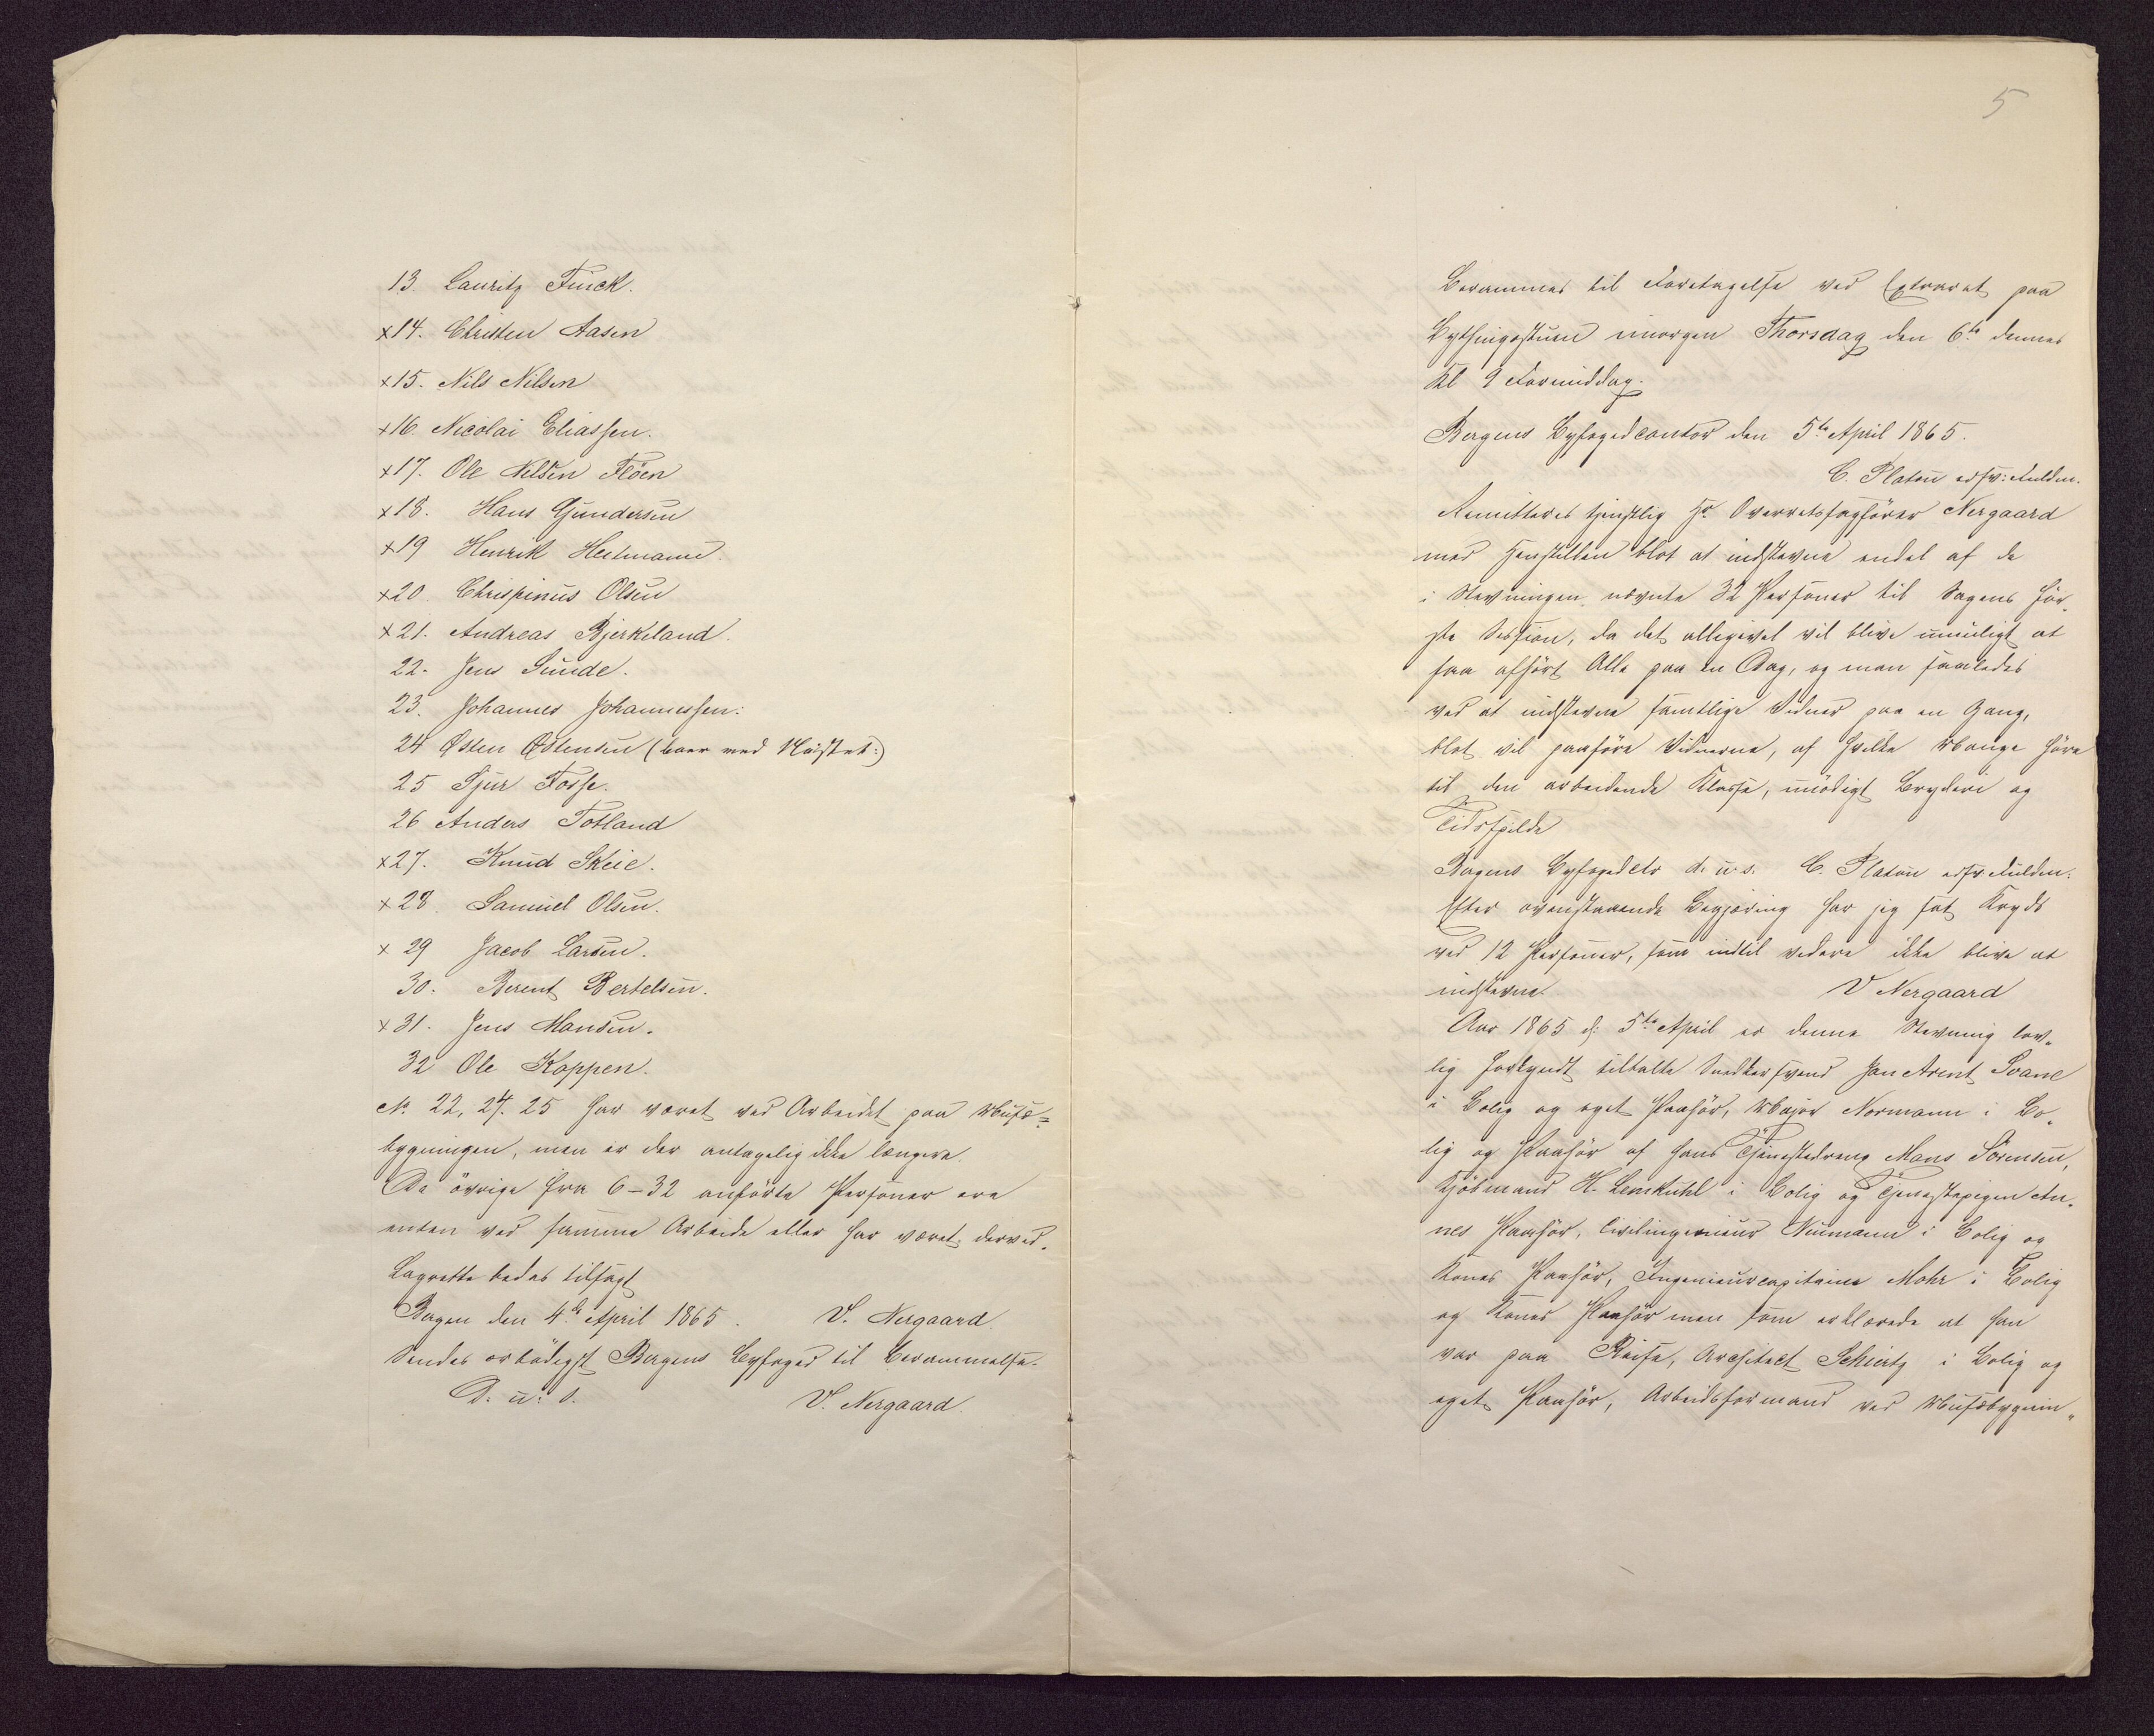 13. Lauritz Finck.
x14. Christen Aasen
x15. Nils Nilsen
x16. Nicolai Eliassen.
x17. Ole Nilsen Flöen
x18. Hans Gundersen
x19 Henrik Heitmann.
x20. Chrispinus Olsen
x21. Andreas Bjerkeland.
22. Jens Sunde.
23. Johannes Johannessen:
24 Østen Østensen (boer ved Nöstet:)
25 Sjur Fosse.
26 Anders Totland
x27. Knud Skeie.
x28. Samuel Olsen.
x 29 Jacob Larsen.
30. Berent Bertelsen.
x31. Jens Monsen.
32 Ole Koppen.
No 22, 24. 25 har været ved Arbeidet paa Musæ=
bygningen, men er der antagelig ikke længere.
De övrige fra 6-32 anförte Personer ere
enten ved samme Arbeide eller har været derved.
Lagrette bedes tilsagt
Bergen den 4de April 1865. V. Nergaard.
Sendes ærbödigst Bergens Byfoged til Berammelse.
D. u. s. V. Nergaard.
5
Berammes til Foretagelse ved Extraret paa
Bythingstuen imorgen Thorsdag den 6te dennes
Kl 9 Formiddag.
Bergens Byfogedcontor den 5te April 1865.
C. Platou edsv: Fuldm.
Remitteres tjenstlig Hr Overretssagförer Nergaard
med Henstillen blot at indstevne endel af de
i Stevningen nævnte 32 Personer til Sagens för,
ste Session, da det alligevel vil blive umuligt at
faa afhört Alle paa en Dag, og man saaledes
ved at indstevne samtlige Vidner paa en Gang,
blot vil paaföre Vidnerne, af hvilke Mange höre
til den arbeidende Klasse, unödigt Bryderi og
Tidsspilde
Bergens Byfogedctr d. u. s. C. Platou edsv Fuldm.
Efter ovenstaaende Begjæring har jeg sat Kryds
ved 12 Personer, som indtil videre ikke blive at
indstevne. V Nergaard
Aar 1865 d: 5te April er denne Stevning lov,
lig forkyndt tiltalte Snedkersvend Jan Arent Svane
i Bolig og eget Paahör, Major Normann i Bo,
lig og Paahör af hans Tjenestedreng Mons Sörensen,
Kjöbmand H. Lemkühl i Bolig og Tjenestepigen An,
nes Paahör, Civilingenieur Neumann i Bolig og
Kones Paahör, Ingenieurcapitaine Mohr i Bolig
og Kones Paahör men som erklærede at han
var paa Reise, Architect Schiertz i Bolig og
eget Paahör, Arbeidsformand ved Musæbygnin,